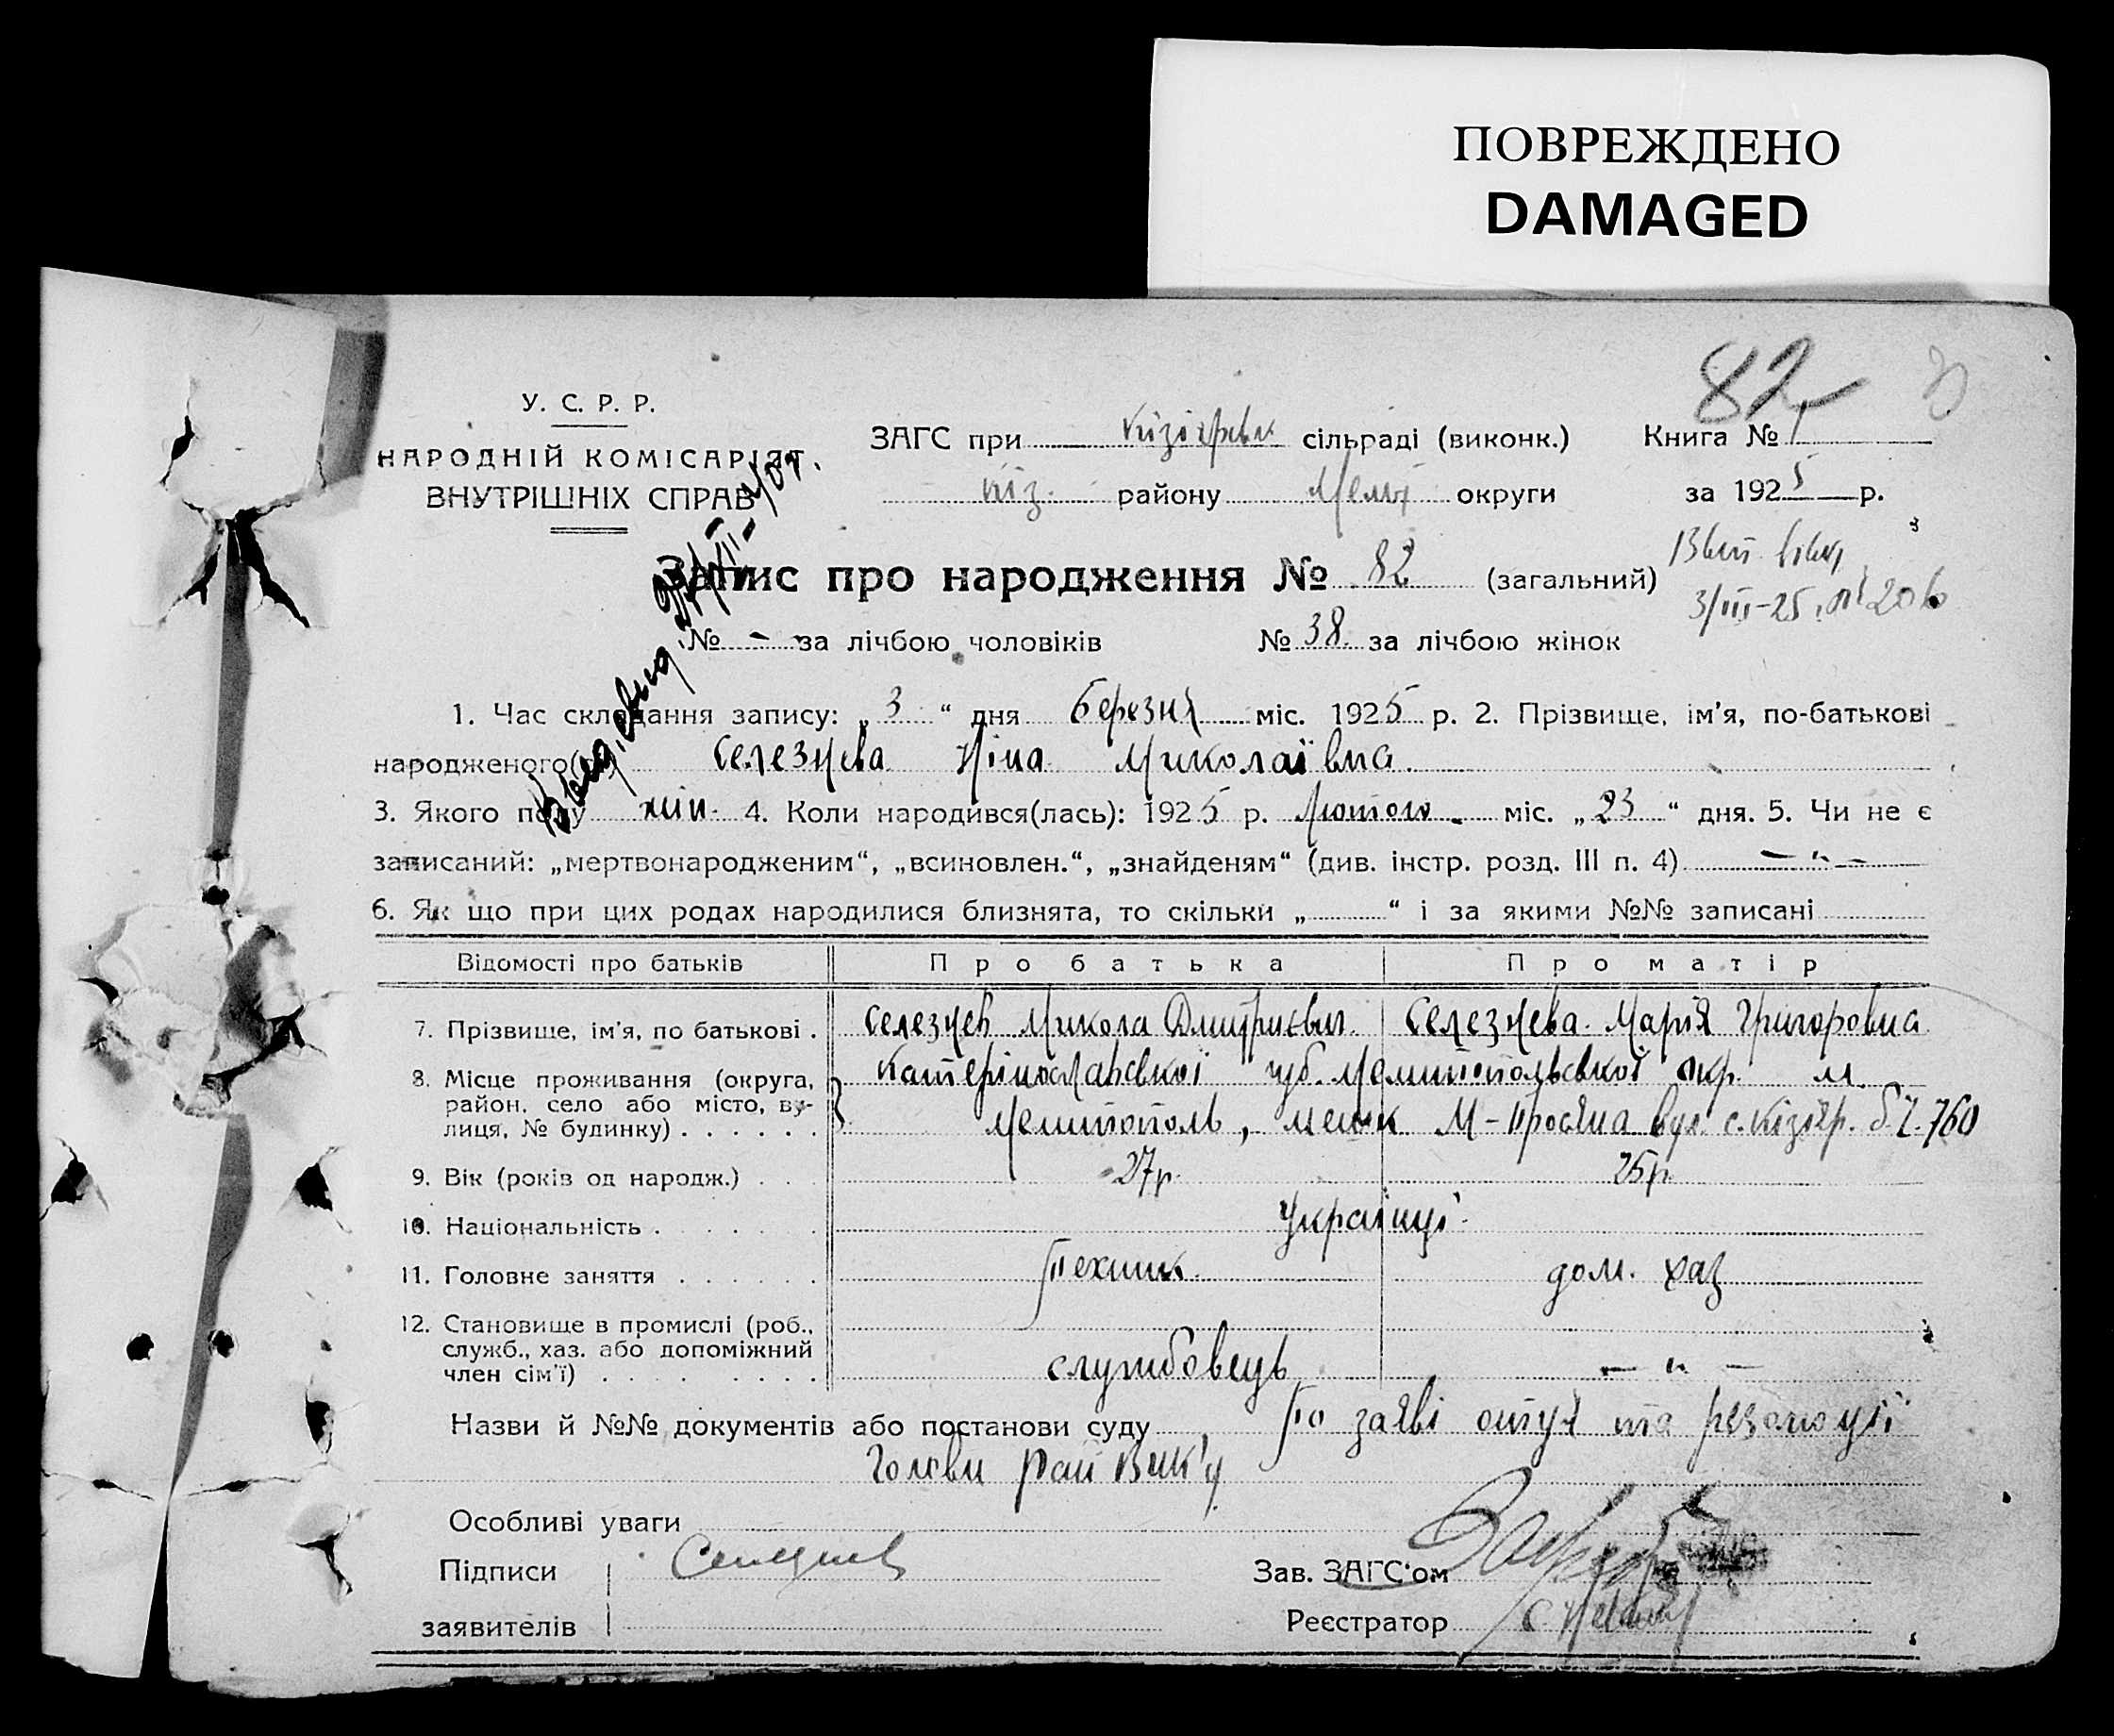 ПОВРЕЖДЕНО
DAMAGED
82
У. С. Р. Р.
НАРОДНІЙ КОМІСАРІЯТ
ВНУТРІШНІХ СПРАВ
ЗАГС при сільраді (виконк.) Книга № 1
кіз. району Меліт округи за 1925 р.
Запис про народження № 82 (загальний)
3/III-25
№ — за лічбою чоловіків № 38. за лічбою жінок
1. Час складання запису: „3“ дня березня міс. 1925 р. 2. Прізвище, ім’я, по-батькові
народженого(ї) Селезнева Ніна Миколаївна.
3. Якого полу жін. 4. Коли народився(лась): 1925 р. Лютого міс. „23“ дня. 5. Чи не є
записаний: „мертвонародженим“, „всиновлен.“, „знайденям“ (див. інстр. розд. III п. 4) — „ —
6. Як що при цих родах народилися близнята, то скільки „ “ і за якими №№ записані
Відомості про батьків Про батька Про матір
7. Прізвище, ім’я, по батькові . Селезнев Микола Дмитриєвич. Селезнева Марія Григоровна
8. Місце проживання (округа, Катеринославської губ. Мелитопольської окр. м.
район, село або місто, ву- Мелитополь, М-Просяна вул.
лиця, № будинку) . . . . . . 760
9. Вік (років од народж.) . . . 27р. 25р.
10. Національність . . . . . . Українці
11. Головне заняття . . . . . . Технік дом. хаз
12. Становище в промислі (роб.,
служб., хаз. або допоміжний
член сім’ї) . . . . . . . . . службовець — „ —
Назви й №№ документів або постанови суду По заяві отця та резолюції
Голови Рай Вик'у
Особливі уваги
Підписи Селезнев Зав. ЗАГС’ом
заявителів Реєстратор